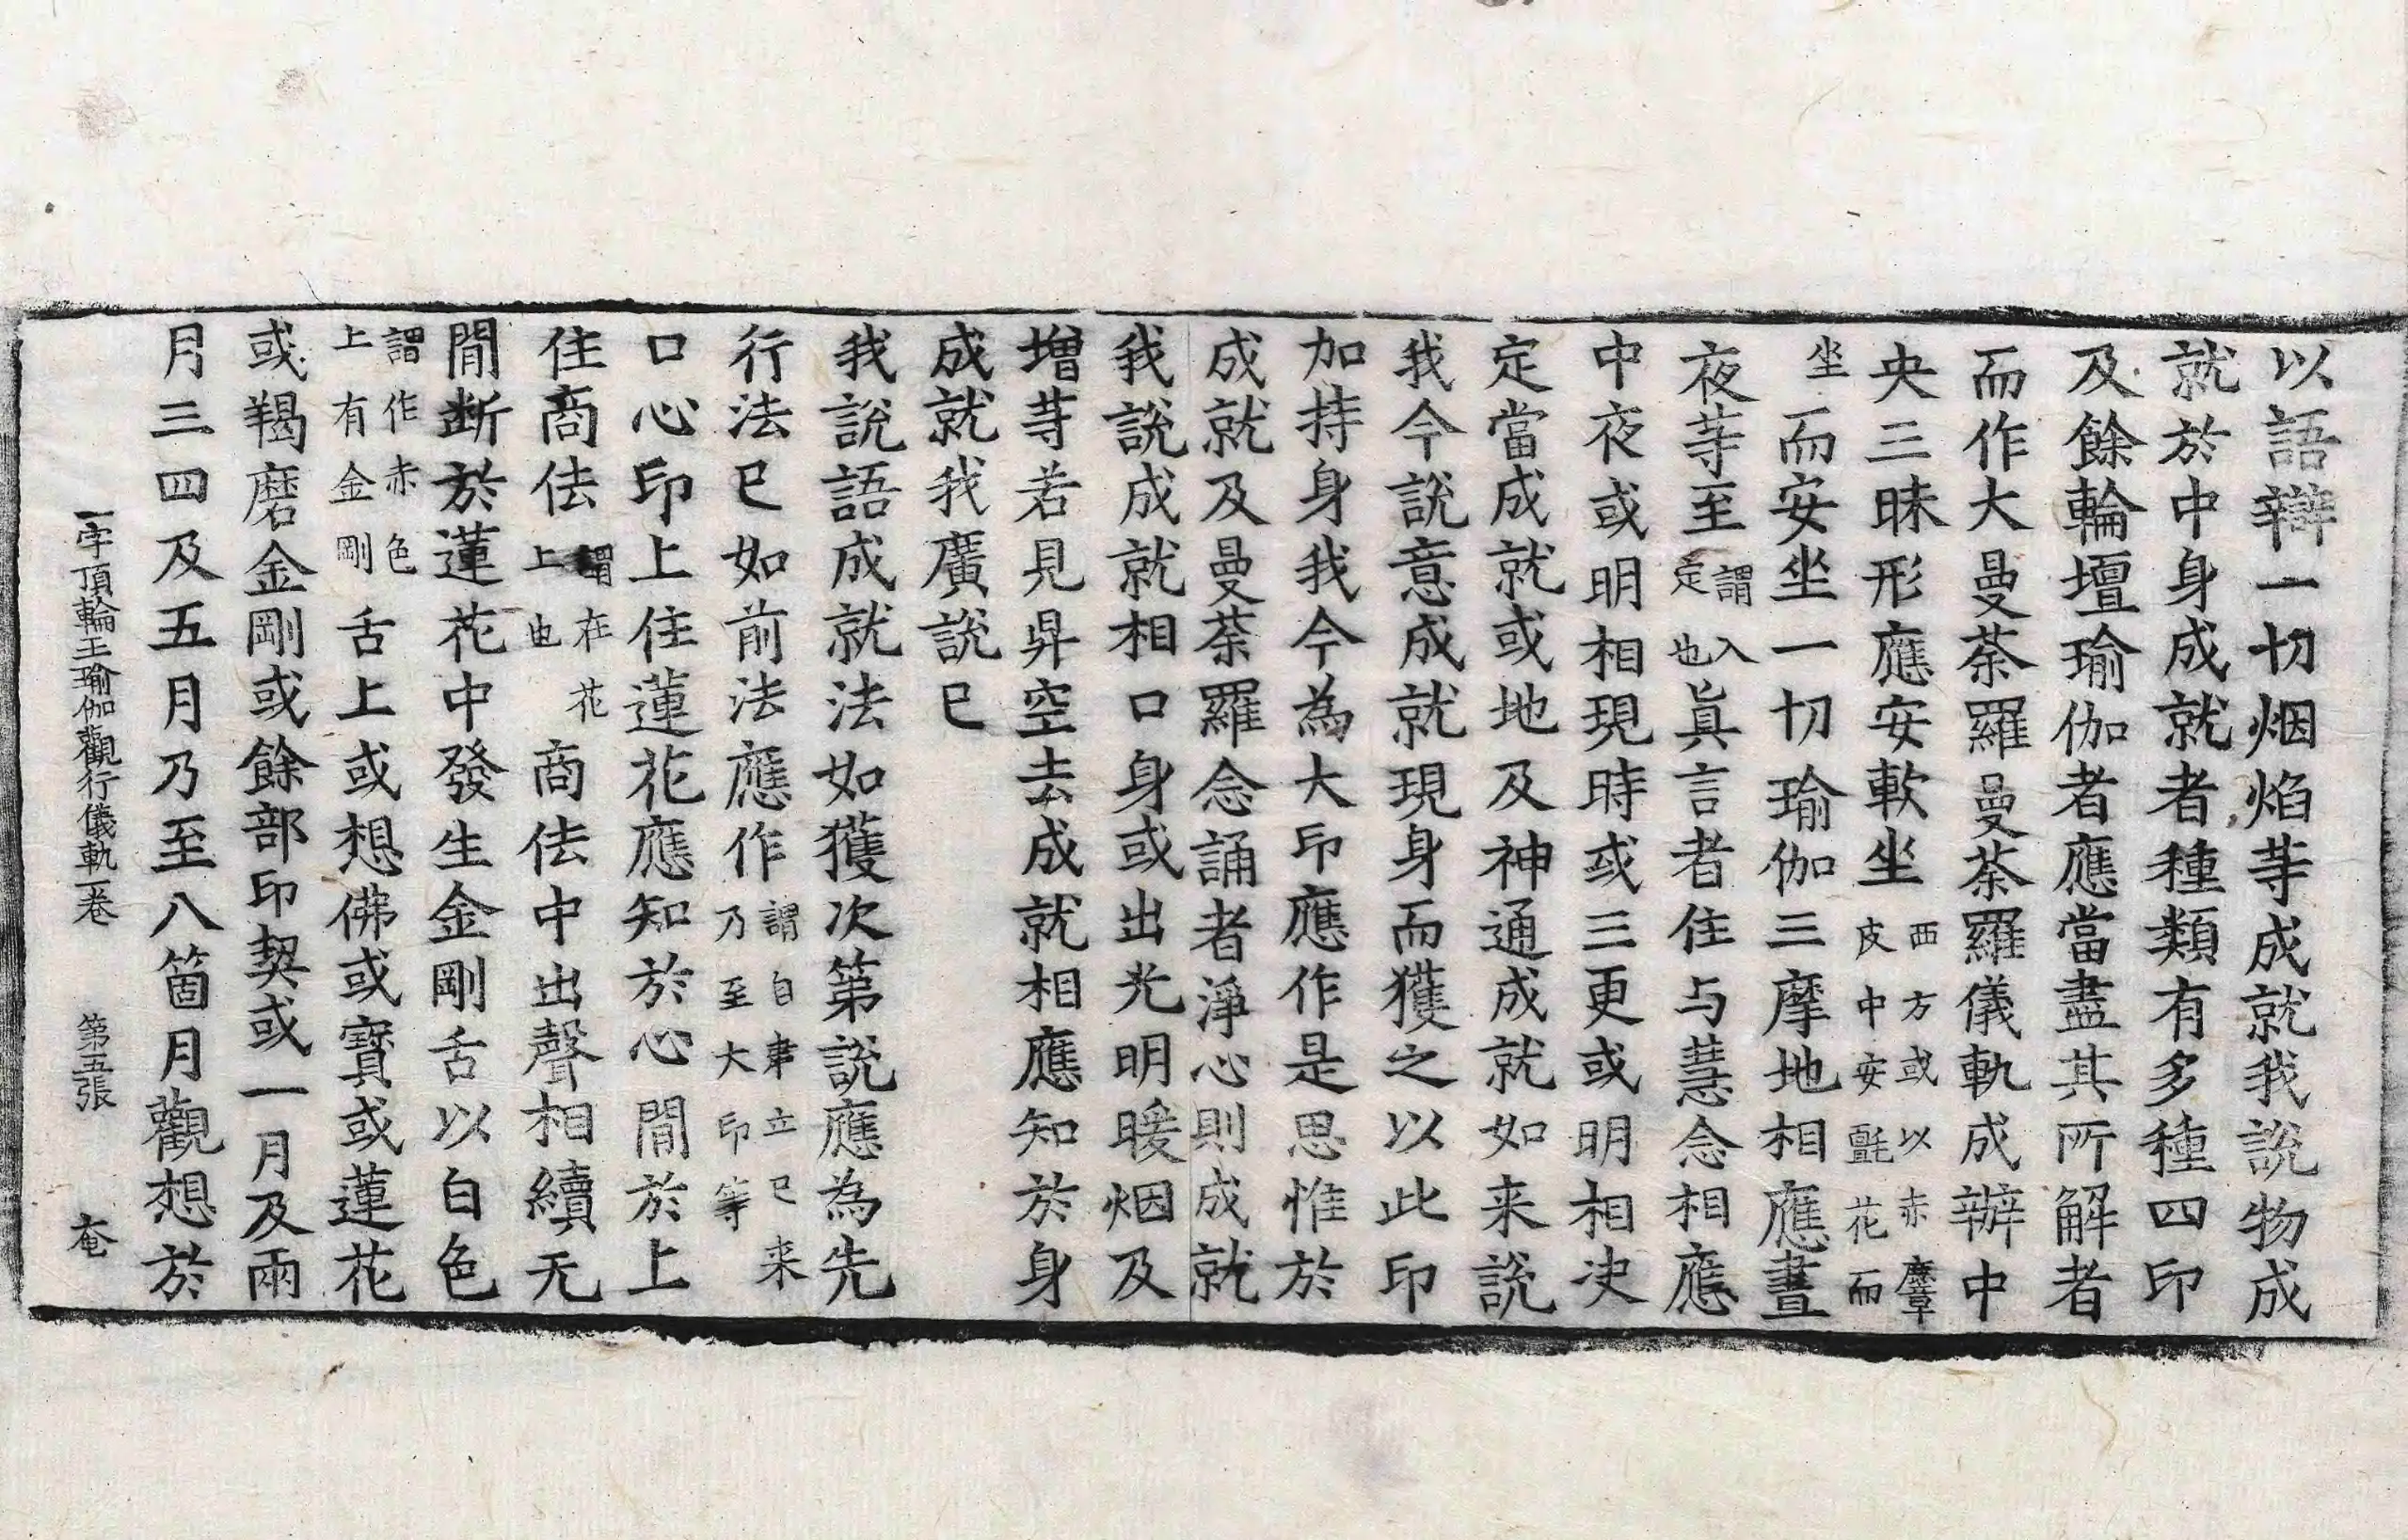 以語辯一切烟焰䓁成就我說物成
就於中身成就者種類有多種四印
及餘輪壇瑜伽者應當盡其所解者
而作大曼荼羅曼荼羅儀軌成辦中
央三昧形應安軟坐西方或以赤麞皮中安氈花而
坐而安坐一切瑜伽三摩地相應晝
夜䓁至謂入定也眞言者住与慧念相應
中夜或明相現時或三更或明相决
定當成就或地及神通成就如来說
我今說意成就現身而獲之以此印
加持身我今為大印應作是思惟於
成就及曼荼羅念誦者淨心則成就
我說成就相口身或出光明暖烟及
增䓁若見昇空去成就相應知於身
成就我廣說已
我說語成就法如獲次第說應為先
行法已如前法應作謂自建立已来乃至大印等
口心印上住蓮花應知於心間於上
住商佉謂在花上也商佉中出聲相續无
間断於蓮花中發生金剛舌以白色
謂作赤色上有金剛舌上或想佛或寶或蓮花
或羯磨金剛或餘部印契或一月及兩
月三四及五月乃至八箇月觀想於
一字頂輪王瑜伽觀行儀軌一卷 第五張 奄